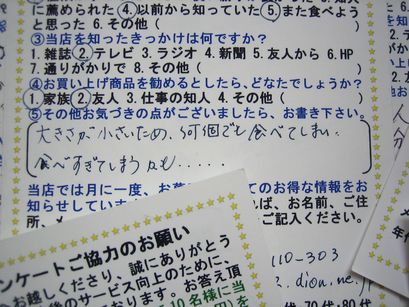 に薦められた ④.以前から知っていた ⑤.また食べよう
と思った 6.その他 (
③当店を知ったきっかけは何ですか?
1.雑誌 ②.テレビ 3.ラジオ 4.新聞 5.友人から 6.HP
7.通りがかりで 8.その他 (
④お買い上げ商品を勧めるとしたら、どなたでしょうか?
①.家族 ②.友人 3.仕事の知人 4.その他 (
⑤その他お気づきの点がございましたら、お書き下さい。
大きさが小さいため、何個でも食べてしまい、
食べすぎてしまう
当店では月に一度、お
てのお得な情報をお
知らせしています
ば、お名前、ご住
所、メ
ご記入ください。
ンケートご協力のお願い
お越しくださり、誠にありがとう
後のサービス向上のために、
ております。お答え頂
10名様に当
110-303
2.dion.ne.j
70代・80代